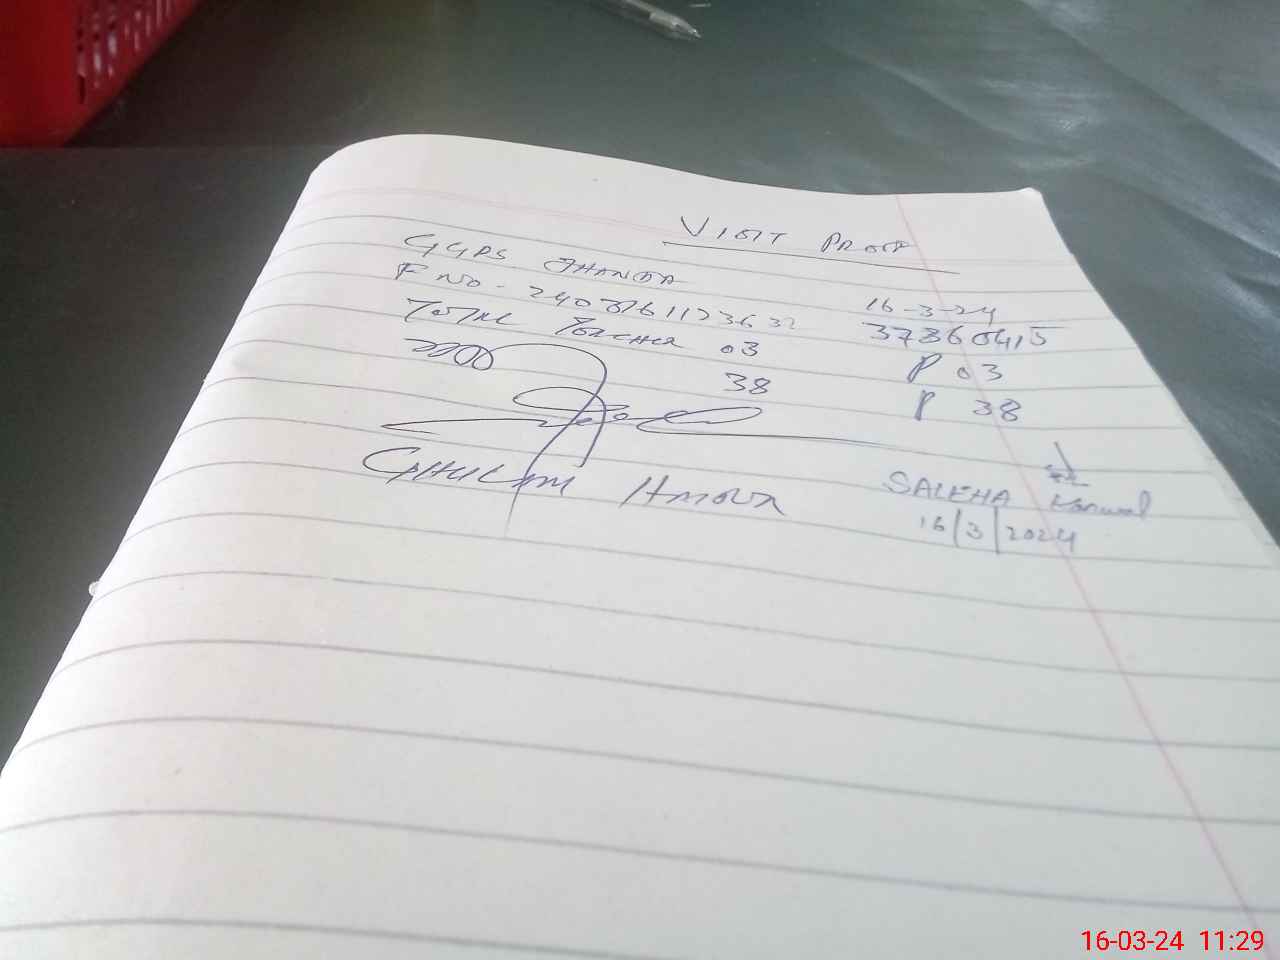 VISIT PROOF
GGPS JHANDA 16-3-24
F NO- 24031611236 37360415
TOTAL TEACHER 03 P 03
38 P 38
GHULAM
SALEHA Kanwal
16/3/2024
16-03-24 11:29